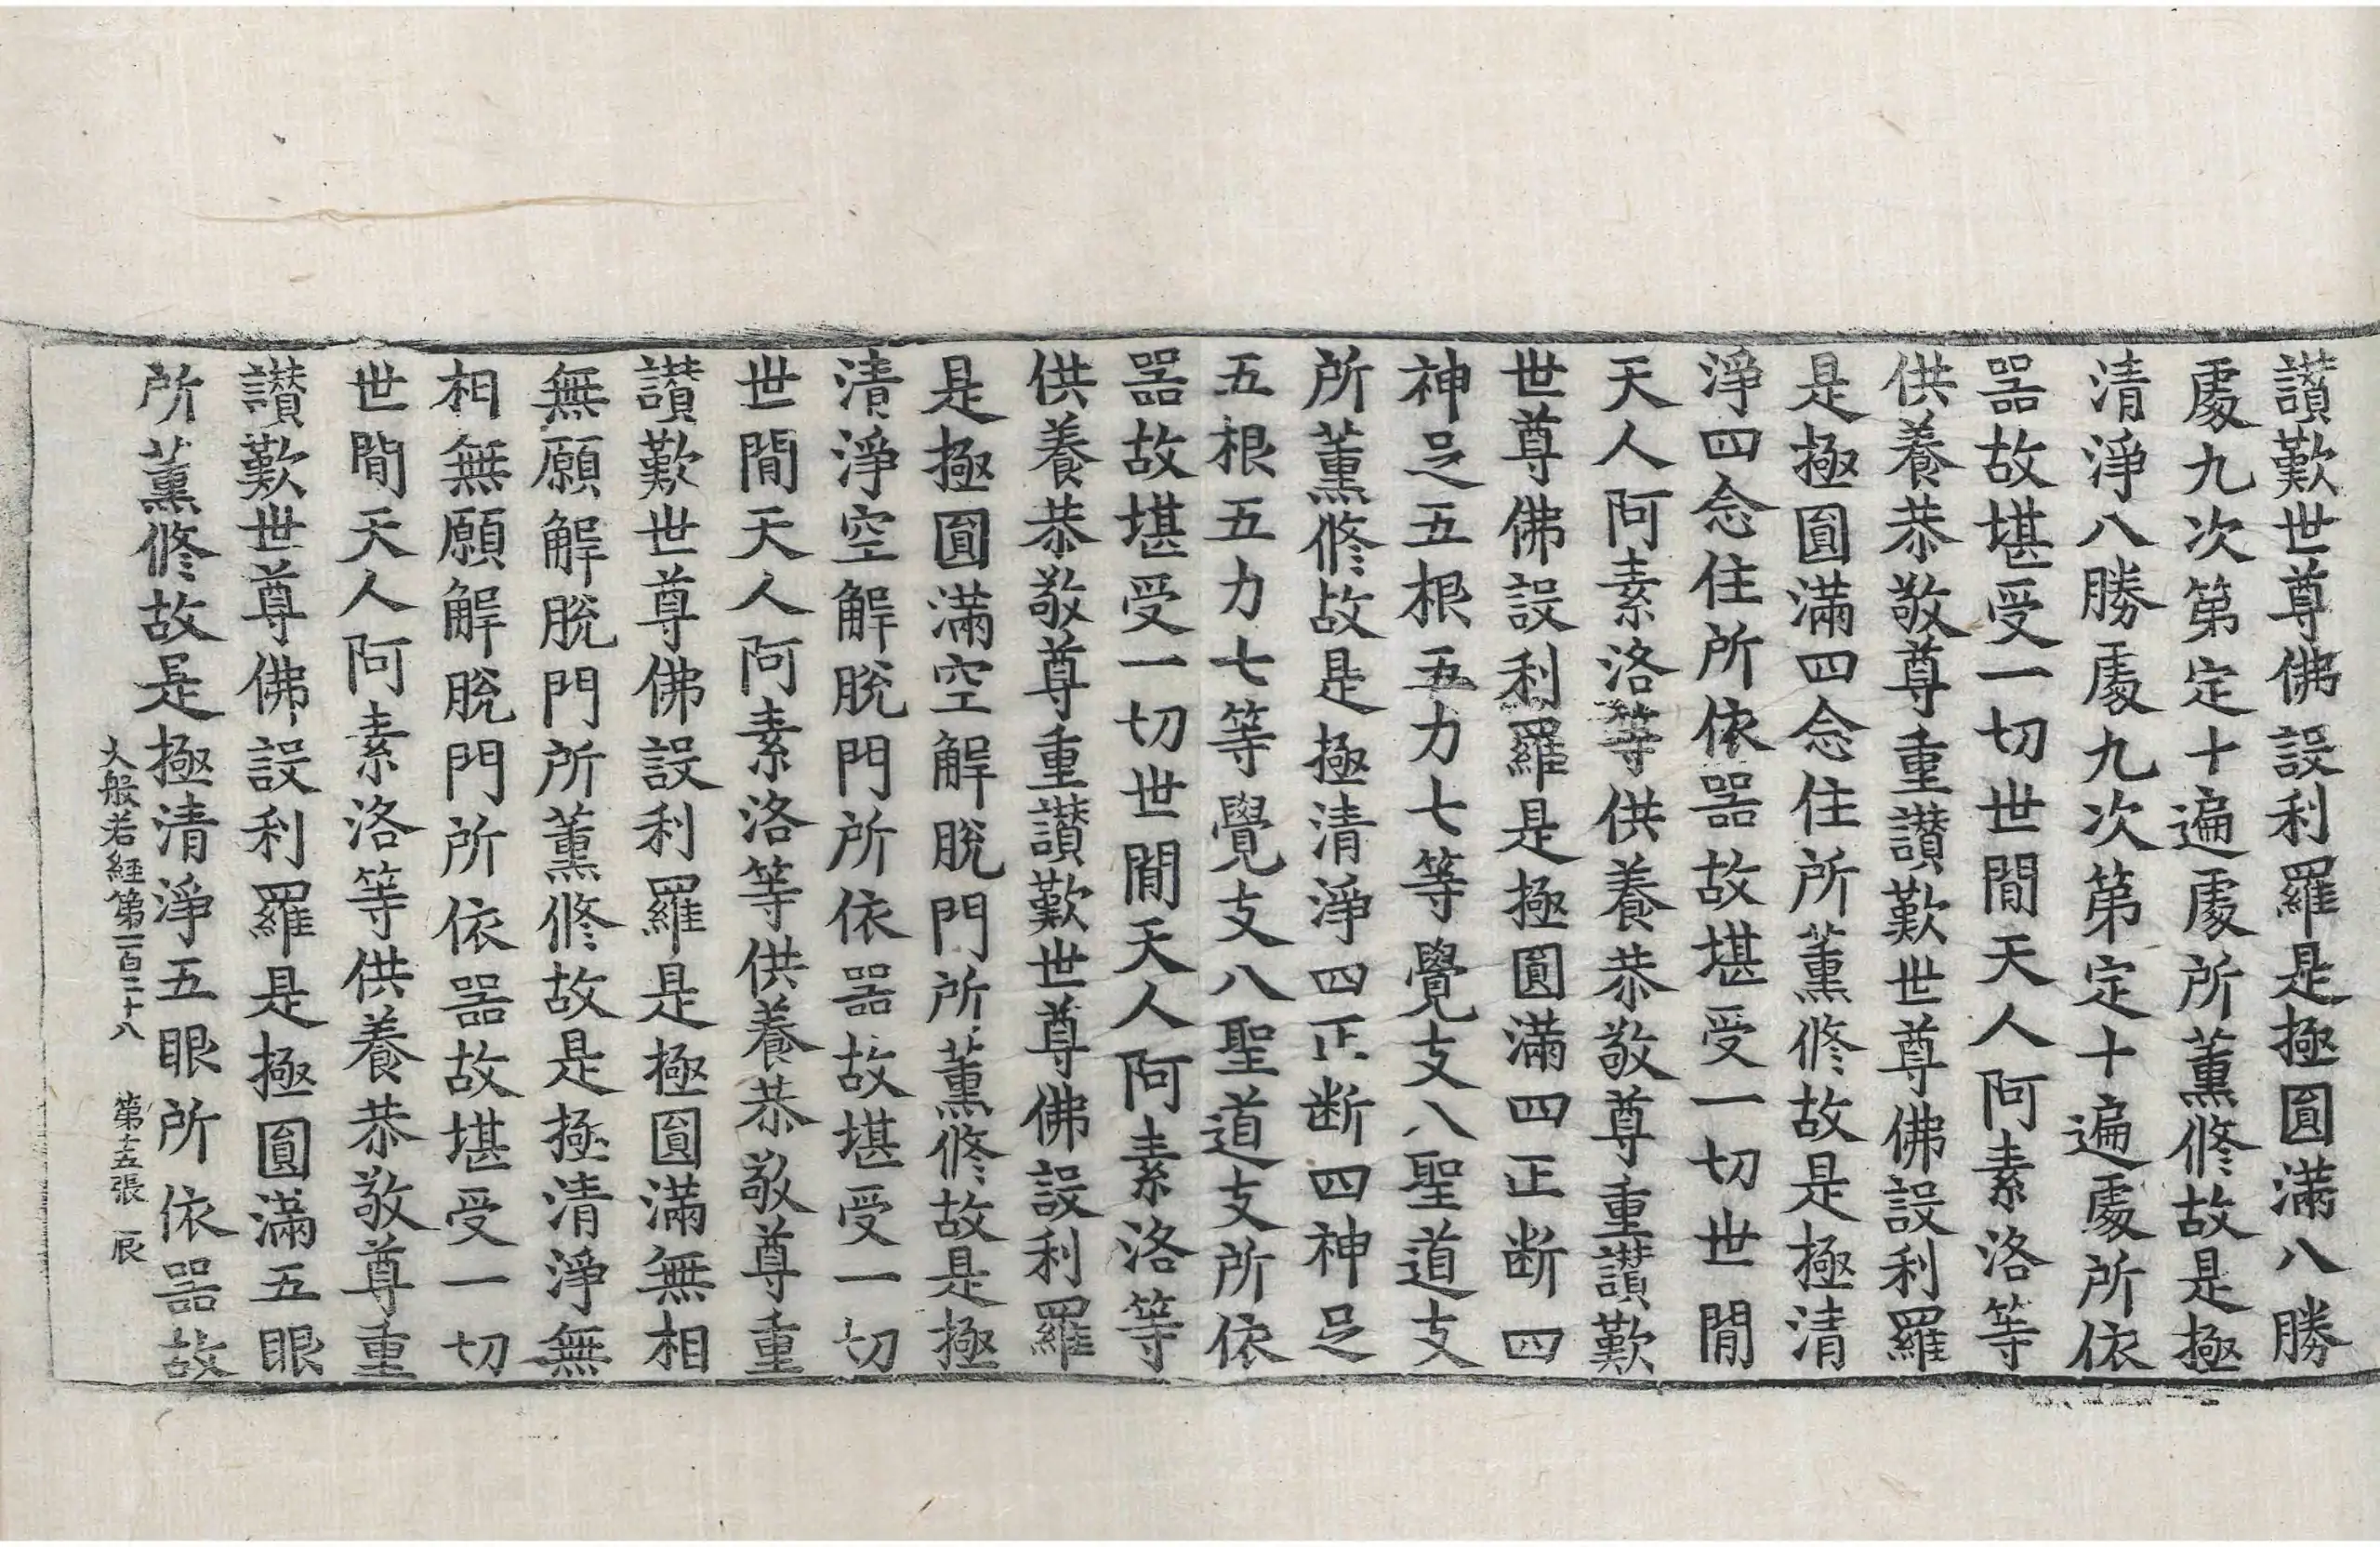 讃歎世尊佛設利羅是極圓滿八勝
處九次第定十遍處所薰修故是極
清淨八勝處九次第定十遍處所依
器故堪受一切世閒天人阿素洛等
供養恭敬尊重讃歎世尊佛設利羅
是極圓滿四念住所薰修故是極清
淨四念住所依器故堪受一切世閒
天人阿素洛等供養恭敬尊重讃歎
世尊佛設利羅是極圓滿四正断四
神足五根五力七等覺支八聖道支
所薰修故是極清淨四正断四神足
五根五力七等覺支八聖道支所依
器故堪受一切世閒天人阿素洛等
供養恭敬尊重讃歎世尊佛設利羅
是極圓滿空解脫門所薰修故是極
清淨空解脫門所依器故堪受一切
世閒天人阿素洛等供養恭敬尊重
讃歎世尊佛設利羅是極圓滿無相
無願解脫門所薰修故是極清淨無
相無願解脫門所依器故堪受一切
世閒天人阿素洛等供養恭敬尊重
讃歎世尊佛設利羅是極圓滿五眼
所薰修故是極清淨五眼所依器故
大般若経第一百二十八 第十五張 辰